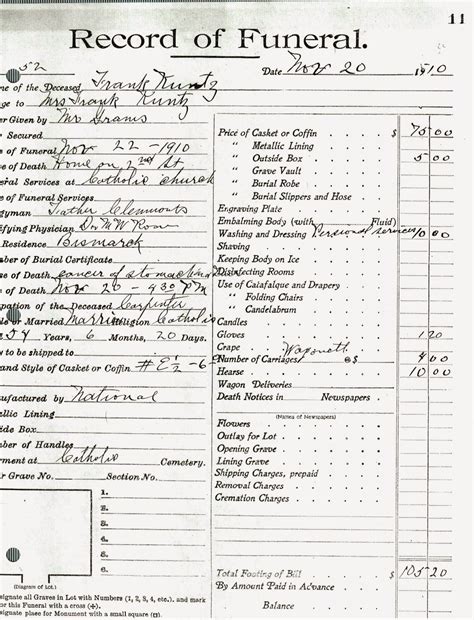 11
Record of Funeral.
52
Date Nov 20 1910
me of the Deceased Frank Kuntz
ge to Mrs Frank Kuntz
er Given by Mr
w Secured
e of Funeral Nov 22 - 1910
ce of Death Home on 2nd St
eral Services at Catholic Church
e of Funeral Services
gyman Father
ifying Physician Dr M W Roan
Residence Bismarck
mber of Burial Certificate
se of Death cancer of stomach
e of Death Nov 20 - 4:30 PM
pation of the Deceased Carpenter
le or Married Married Religion Catholic
54 Years, 6 Months, 20 Days.
n to be shipped to
and Style of Casket or Coffin # E 1/2 - 6
nufactured by National
allic Lining
side Box
mber of Handles
rment at Catholic Cemetery.
r Grave No. Section No.
1.
2.
3.
4.
5.
6.
(Diagram of Lot.)
signate all Graves in Lot with Numbers (1, 2, 3, 4, etc.), and mark
or this Funeral with a cross (+).
signate place for Monument with a small square (□).
Price of Casket or Coffin $ 75 00
" Metallic Lining
" Outside Box 5 00
" Grave Vault
" Burial Robe
" Burial Slippers and Hose
Engraving Plate
Embalming Body (with Fluid)
Washing and Dressing Personal services 10 00
Shaving
Keeping Body on Ice
Disinfecting Rooms
Use of Catafalque and Drapery
" Folding Chairs
" Candelabrum
Candles
Gloves 1 20
Crape
Number of Carriages Wagonett @$ 4 00
Hearse 10 00
Wagon Deliveries
Death Notices in Newspapers
(Names of Newspapers)
Flowers
Outlay for Lot
Opening Grave
Lining Grave
Shipping Charges, prepaid
Removal Charges
Cremation Charges
Total Footing of Bill $ 105 20
By Amount Paid in Advance
Balance